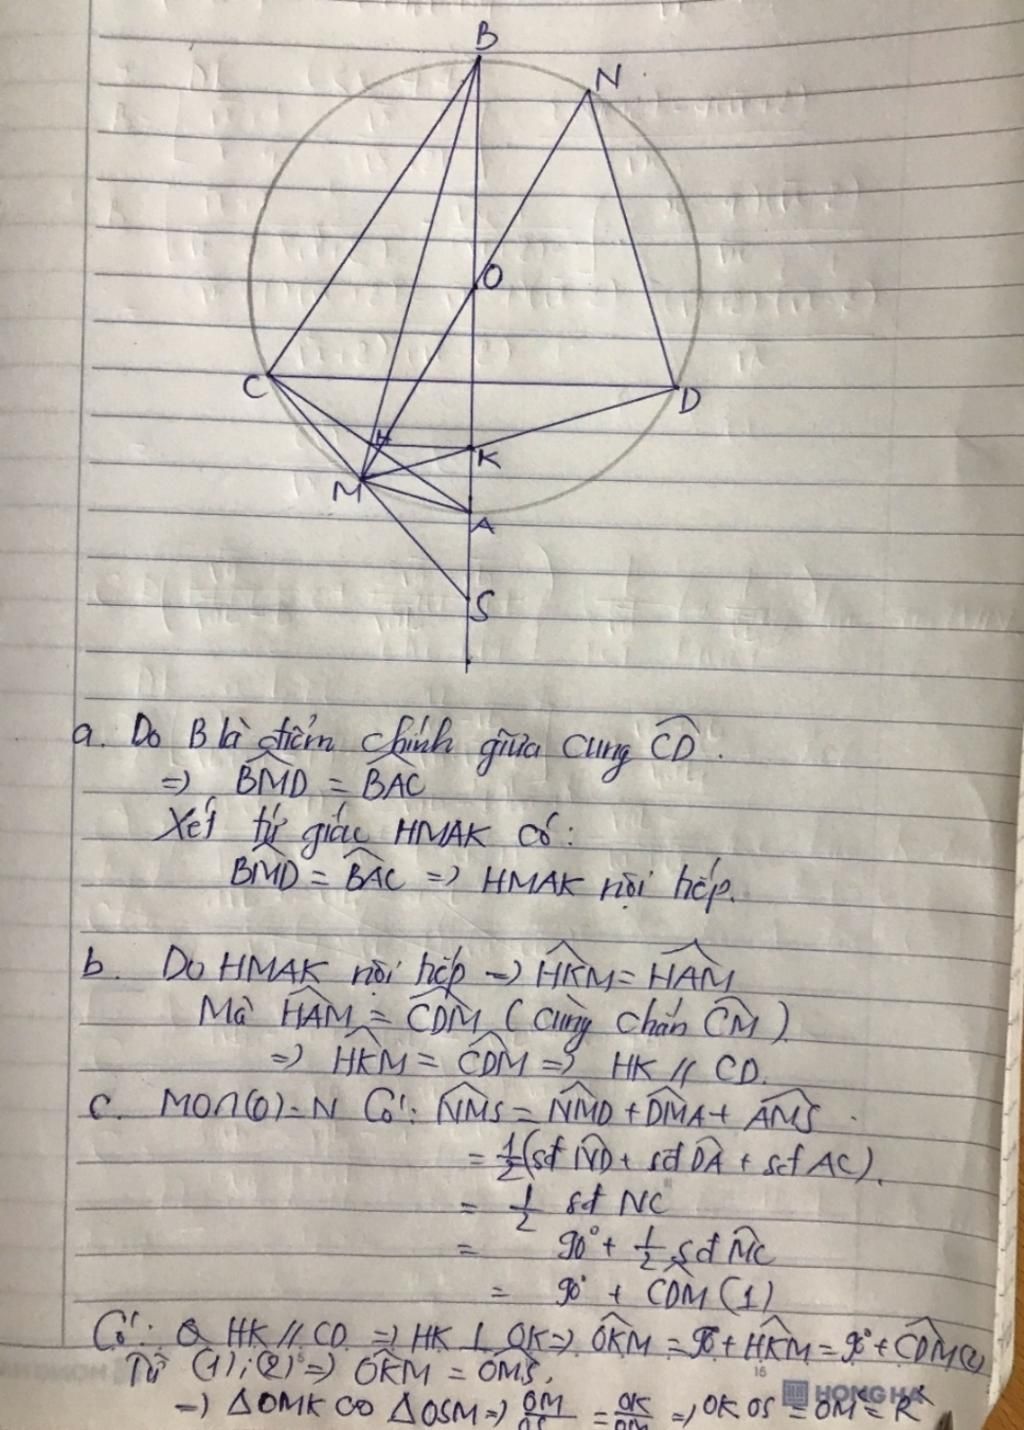 B
N
O
C
D
H
K
M
A
S
a. Do B là điểm chính giữa cung CD.
=> BMD = BAC
Xét tứ giác HMAK có:
BMD = BAC => HMAK nội tiếp.
b. Do HMAK nội tiếp => HKM = HAM
Mà HAM = CDM (cùng chắn CM)
=> HKM = CDM => HK // CD.
c. MO∩(O) = N Có: NMS = NMD + DMA + AMS.
= 1/2 (sđ ND + sđ DA + sđ AC).
= 1/2 sđ NC
= 90° + 1/2 sđ MC
= 90° + CDM (1)
Có: HK // CD => HK ⊥ OK => OKM = 90° + HKM = 90° + CDM (2)
Từ (1); (2) => OKM = OMS.
=> ΔOMK ∽ ΔOSM => OM/OS = OK/OM => OK OS = OM² = R²
HONG HA
16